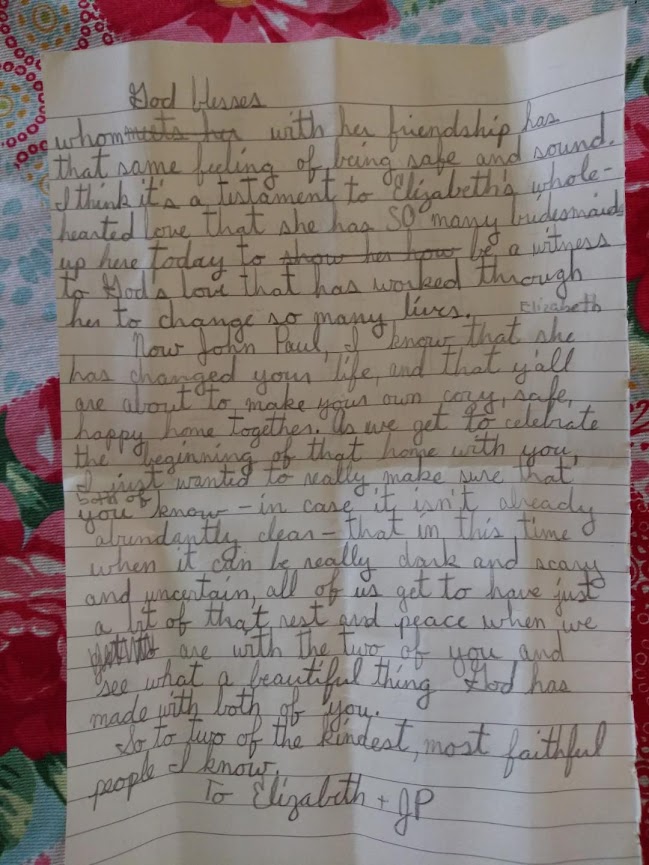 God blesses
whom meets her with her friendship has
that same feeling of being safe and sound.
I think it's a testament to Elizabeth's whole-
hearted love that she has SO many bridesmaids
up here today to show her how be a witness
to God's love that has worked through
her to change so many lives.
Elizabeth
Now John Paul, I know that she
has changed your life, and that y'all
are about to make your own cozy, safe,
happy home together. As we get to celebrate
the beginning of that home with you,
I just wanted to really make sure that
both of
you know - in case it isn't already
abundantly clear - that in this time
when it can be really dark and scary
and uncertain, all of us get to have just
a bit of that rest and peace when we
are with the two of you and
see what a beautiful thing God has
made with both of you.
So to two of the kindest, most faithful
people I know,
To Elizabeth + JP